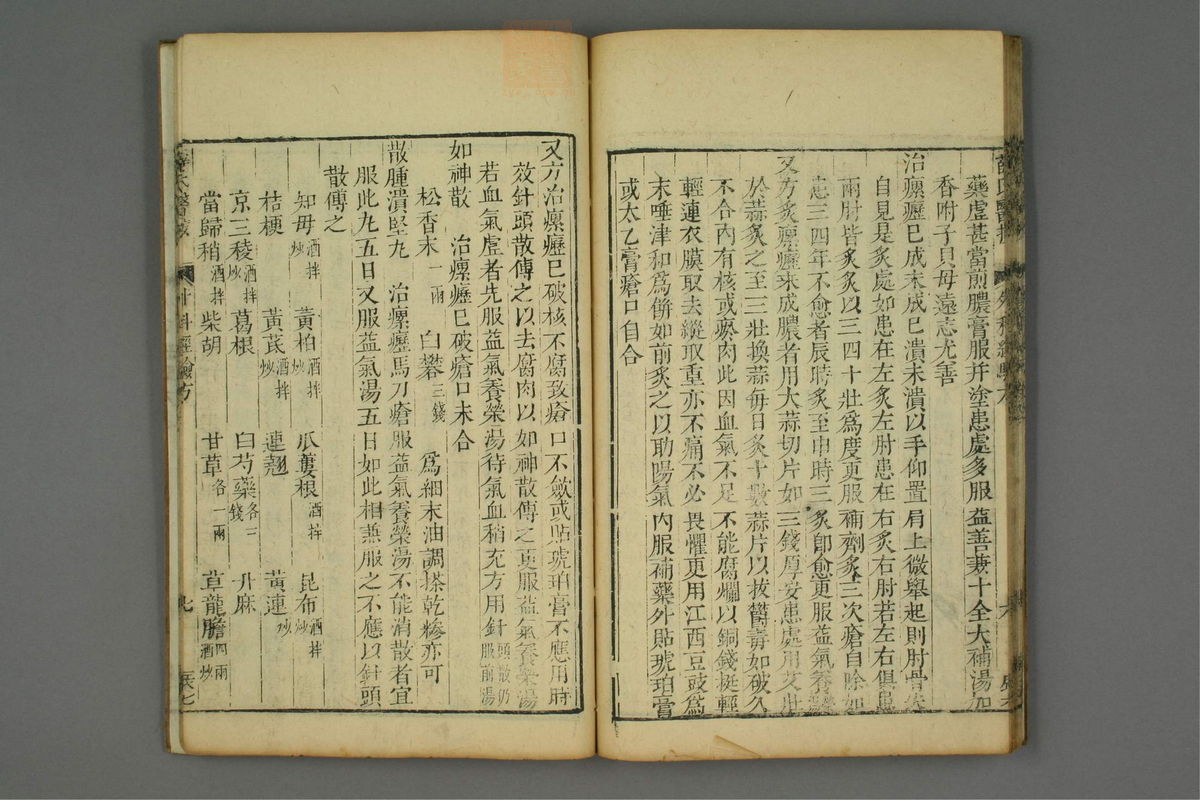 虛甚當煎膿膏服并塗患處多服益善兼十全大補湯加
香附子貝母遠志尤善
治瘰癧已成未成已潰未潰以手仰置肩上微舉起則肘骨尖
自見是灸處如患在左灸左肘患在右灸右肘若左右俱患
兩肘皆灸灸以三四十壯爲度更服補劑灸三次瘡自除如
患三四年不愈者辰時灸至申時三灸卽愈更服益氣養榮湯
又方灸瘰癧未成膿者用大蒜切片如三錢厚安患處用艾壯
於蒜灸之至三壯換蒜每日灸十數蒜片以拔鬱毒如破久
不合內有核或瘀肉此因血氣不足不能腐爛以銅錢挺輕
輕連衣膜取去縱取重亦不痛不必畏懼更用江西豆豉爲
末唾津和爲餅如前灸之以助陽氣內服補藥外貼琥珀膏
或太乙膏瘡口自合
又方治瘰癧已破核不腐致瘡口不斂或貼琥珀膏不應用時
效針頭散傅之以去腐肉以如神散傅之更服益氣養榮湯
若血氣虛者先服益氣養榮湯待氣血稍充方用針頭散仍服前湯
如神散 治瘰癧已破瘡口未合
松香末一兩 白礬三錢 爲細末油調搽乾糝亦可
散腫潰堅丸 治瘰癧馬刀瘡服益氣養榮湯不能消散者宜
服此丸五日又服益氣湯五日如此相兼服之不應以針頭
散傅之
知母酒拌炒 黃柏酒拌炒 瓜蔞根酒拌 昆布酒拌炒
桔梗 黃芪酒拌炒 連翹 黃連炒
京三稜酒拌炒 葛根 白芍藥各二錢 升麻
當歸稍酒拌 柴胡 甘草各一兩 草龍膽四兩酒炒
七